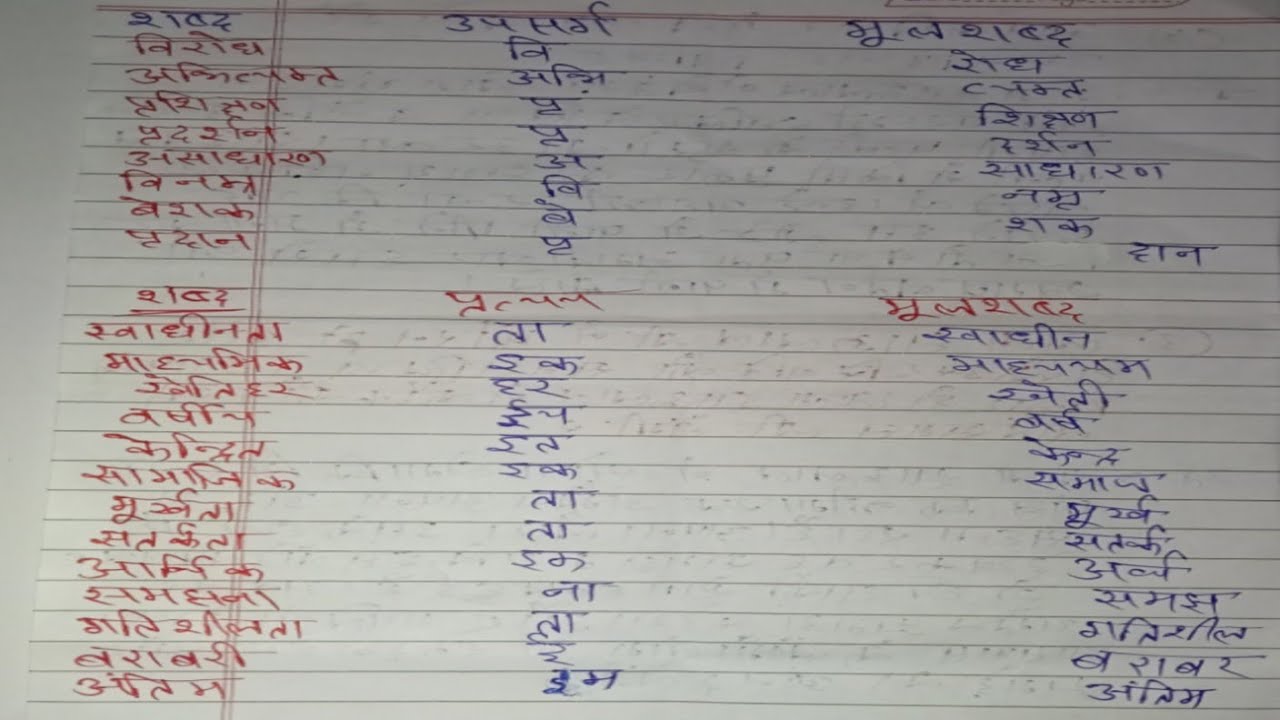 शब्द उपसर्ग मूलशब्द
विरोध वि रोध
अभिव्यक्त अभि व्यक्त
प्रशिक्षण प्र शिक्षण
प्रदर्शन प्र दर्शन
असाधारण अ साधारण
विनम्र वि नम्र
बेशक बे शक
प्रदान प्र दान
शब्द प्रत्यय मूलशब्द
स्वाधीनता ता स्वाधीन
माध्यमिक इक माध्यम
खेतिहर हर खेती
वर्षीय ईय वर्ष
केन्द्रित इत केन्द्र
सामाजिक इक समाज
मूर्खता ता मूर्ख
सतर्कता ता सतर्क
आर्थिक इक अर्थ
समझना ना समझ
गतिशीलता ता गतिशील
बराबरी ई बराबर
अंतिम इम अंतिम